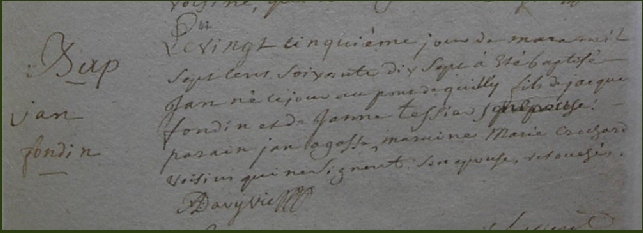 Bap
jan
fondin
Le vingt cinquième jour de mars mil
sept cent soixante dix sept à été baptisé
jan né ce jour au pont de quilly fils de jacque
fondin et de janne tessier
parain jan agosse maraine Marie
voisins qui ne signent. son epouse,